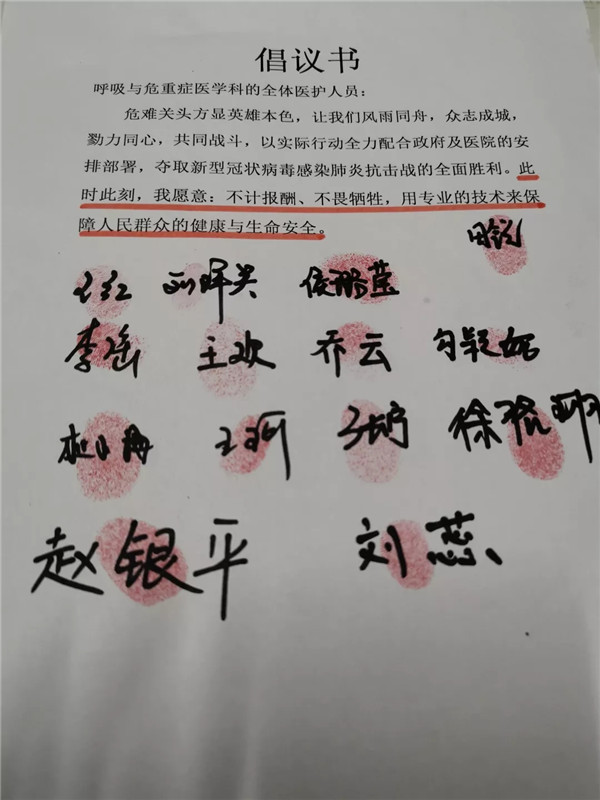 倡议书
呼吸与危重症医学科的全体医护人员：
危难关头方显英雄本色，让我们风雨同舟，众志成城，
勠力同心，共同战斗，以实际行动全力配合政府及医院的安
排部署，夺取新型冠状病毒感染肺炎抗击战的全面胜利。此
时此刻，我愿意：不计报酬、不畏牺牲，用专业的技术来保
障人民群众的健康与生命安全。
田锐
王红 侯彤莹
李瑶 王欢 乔云
王珂
赵银平 刘蕊